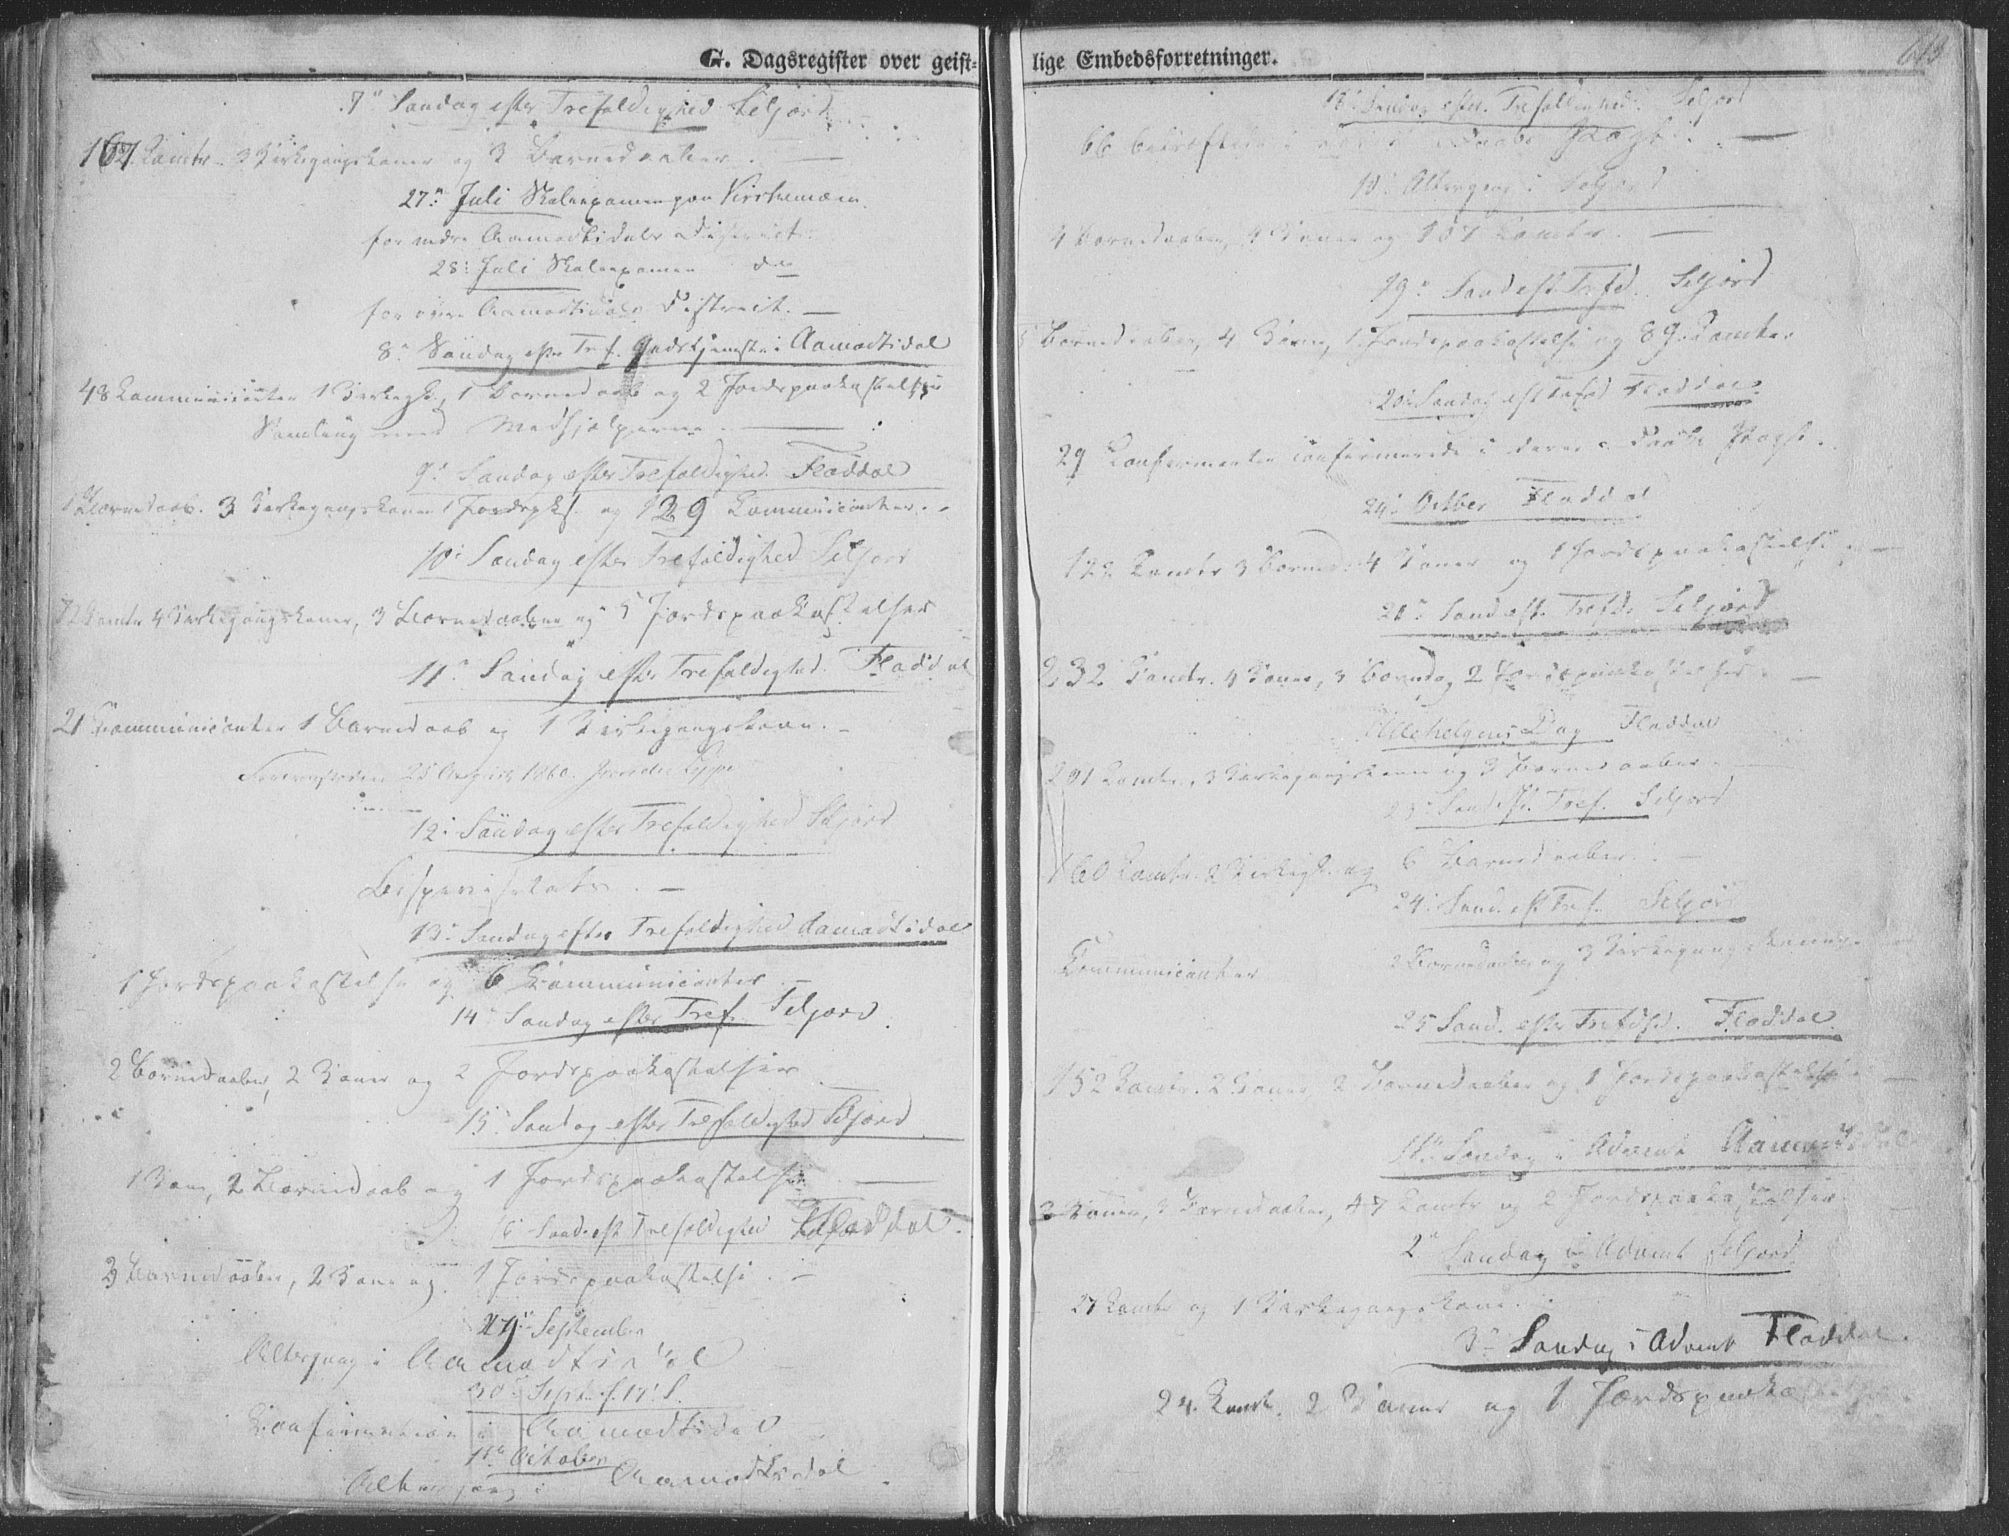 G. Dagsregister over geist=
7de Søndag efter Trefoldighed Seljord
107 Comtr. 3 Kirkegangskoner og 3 Barnedaaber.
27de Juli Skoleexamen paa Kirkemoen
for nedre Aamotsdals District.
28: Juli Skoleexamen do
for øvre Aamotsdals District.
8de Søndag efter Tref. Gudstjeneste i Aamodtsdal
48 Communicanter 1 Kirkegk., 1 Barnedaab og 2 Jordspaakastelser
Samling med Medhjælperne.
9de Søndag efter Trefoldighed. Fladdal
1 Barnedaab. 3 Kirkegangskoner 1 Jordspks. og 129 Communicanter.
10de Søndag efter Trefoldighed Seljord
72 Comtr 4 Kirkegangskoner, 3 Barnedaaber og 5 Jordspaakastelser
11te Søndag efter Trefoldighed. Fladdal
21 Communicanter 1 Barnedaab og 1 Kirkegangskone.
25 August 1860.
12: Søndag efter Trefoldighed Seljord
Bispevisitats.
13de Søndag efter Trefoldighed Aamodtsdal
1 Jordspaakastelse og 6 Communicanter
14de Søndag efter Tref. Seljord.
2 Barnedaaber, 2 Koner og 2 Jordspaakastelser
15de Søndag efter Trefoldighed Seljord
1 Kone, 2 Barnedaab og 1 Jordspaakastelse
16 Sønd. eft Trefoldighed Fladdal.
3 Barnedaaber, 2 Koner og 1 Jordspaakastelse.
29de September
Altergang i Aamodtsdal
30de Sept. f. 17de S.
Confirmation i Aamodtsdal
1ste October
Altergang i Aamodtsdal
lige Embedsforretninger.
613
18de Søndag efter Trefoldighed. Seljord
66 bekræftede i deres Daabs Pagt.
Altergang i Seljord
4 Barnedaaber, 4 Koner og 107 Comtr.
19de Sønd eft. Trefd. Seljord
5 Barnedaaber, 4 Koner, 1 Jordspaakastelse og 89 Comtr.
20de Søndag eft Trefod Fladdal.
29 Confirmanter confirmerede i deres Daabs Pagt.
24de Octber Fladdal
122 Comtr 3 Barned. 4 Koner og 1 Jordspaakastelse.
21de Sønd eft. Trefd. Seljord
232 Comtr. 4 Koner, 3 Barnd og 2 Jordspaakastelser.
Allehelgens Dag Fladdal
201 Comtr., 3 Kirkegangskoner og 3 Barnedaaber.
23de Sønd eft. Tref. Seljord
160 Comtr. 2 Kirkegk. og 6 Barnedaaber.
24de Sønd. eft Tref. Seljord
Communicanter 2 Barnedaaber og 3 Kirkegangskoner
25 Sønd. efter Trefdhd. Fladdal.
152 Comtr. 2 Koner, 2 Barnedaaber og 1 Jordspaakastelse
1ste Søndag i Advent Aamodtsdal
3 Koner, 3 Barnedaaber, 47 Comtr og 2 Jordspaakastelser.
2den Søndag i Advent Seljord
27 Comtr og 1 Kirkegangskone.
3de Søndag i Advent Fladdal.
24. Comtr. 2 Koner og 1 Jordspaaka